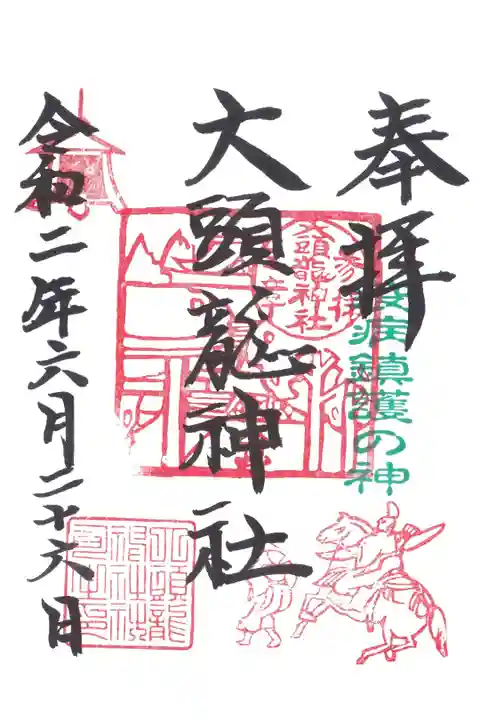 奉拝
疫病鎮護の神
大頭龍神社
大頭龍神社
参拝
令和二年六月二十六日